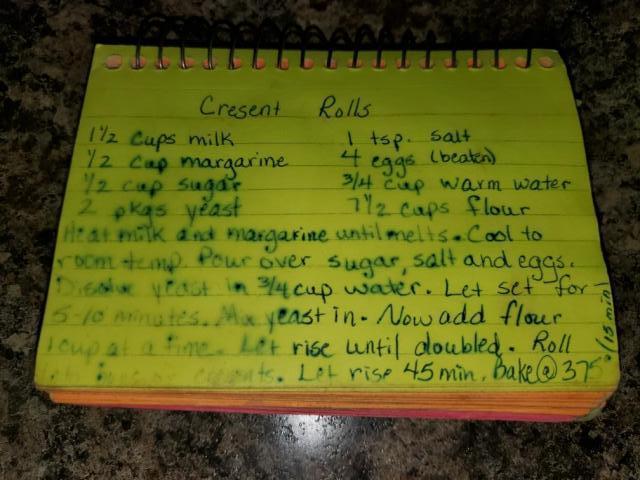 Cresent Rolls
1½ cups milk 1 tsp. salt
½ cup margarine 4 eggs (beaten)
½ cup sugar 3/4 cup warm water
2 pkgs yeast 7½ cups flour
Heat milk and margarine until melts. Cool to
room temp. Pour over sugar, salt and eggs.
Disolve yeast in 3/4 cup water. Let set for
5-10 minutes. Mix yeast in. Now add flour
1 cup at a time. Let rise until doubled. Roll
Let rise 45 min. Bake @ 375°/15 min